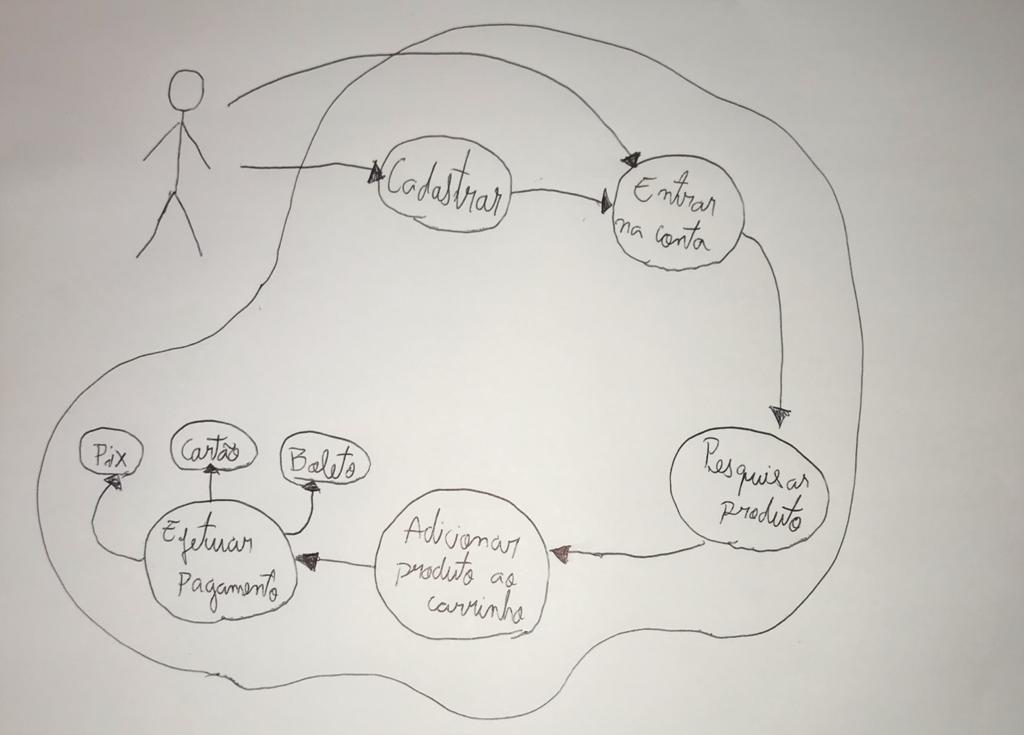 Cadastrar
Entrar
na conta
Pesquisar
produto
Adicionar
produto ao
carrinho
Efetuar
Pagamento
Pix
Cartão
Boleto